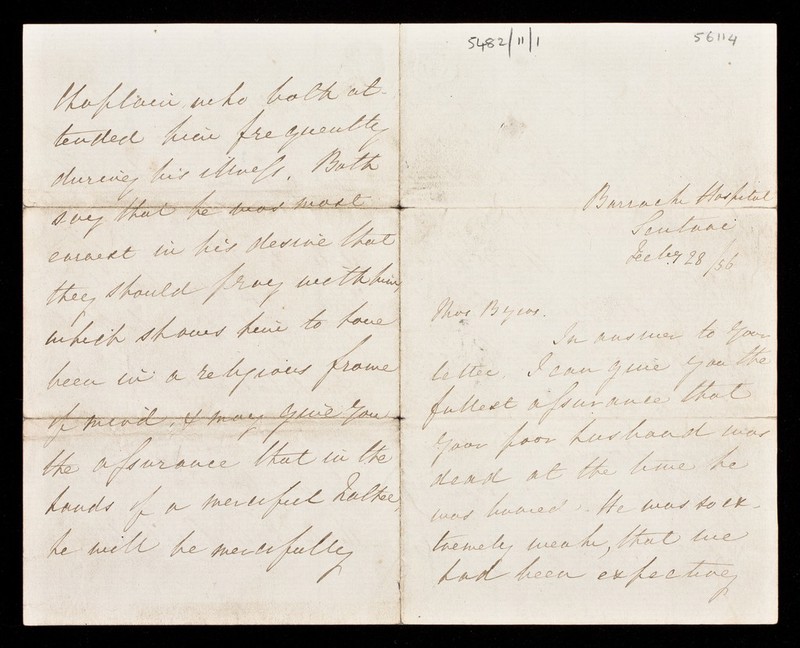 5482/11/1
56114
Chaplain who both at-
tended him frequently
during his illness. Both
say that he was most
earnest in his desire that
they should pray with him,
which shows him to have
been in a religious frame
of mind, & may give you
the assurance that in the
hands of a merciful Father,
he will be mercifully
Barrack Hospital
Scutari
Feb 28/56
Mrs
In answer to your
letter, I can give you the
fullest assurance that
your poor husband was
dead at the time he
was buried. He was so ex-
tremely weak, that we
had been expecting